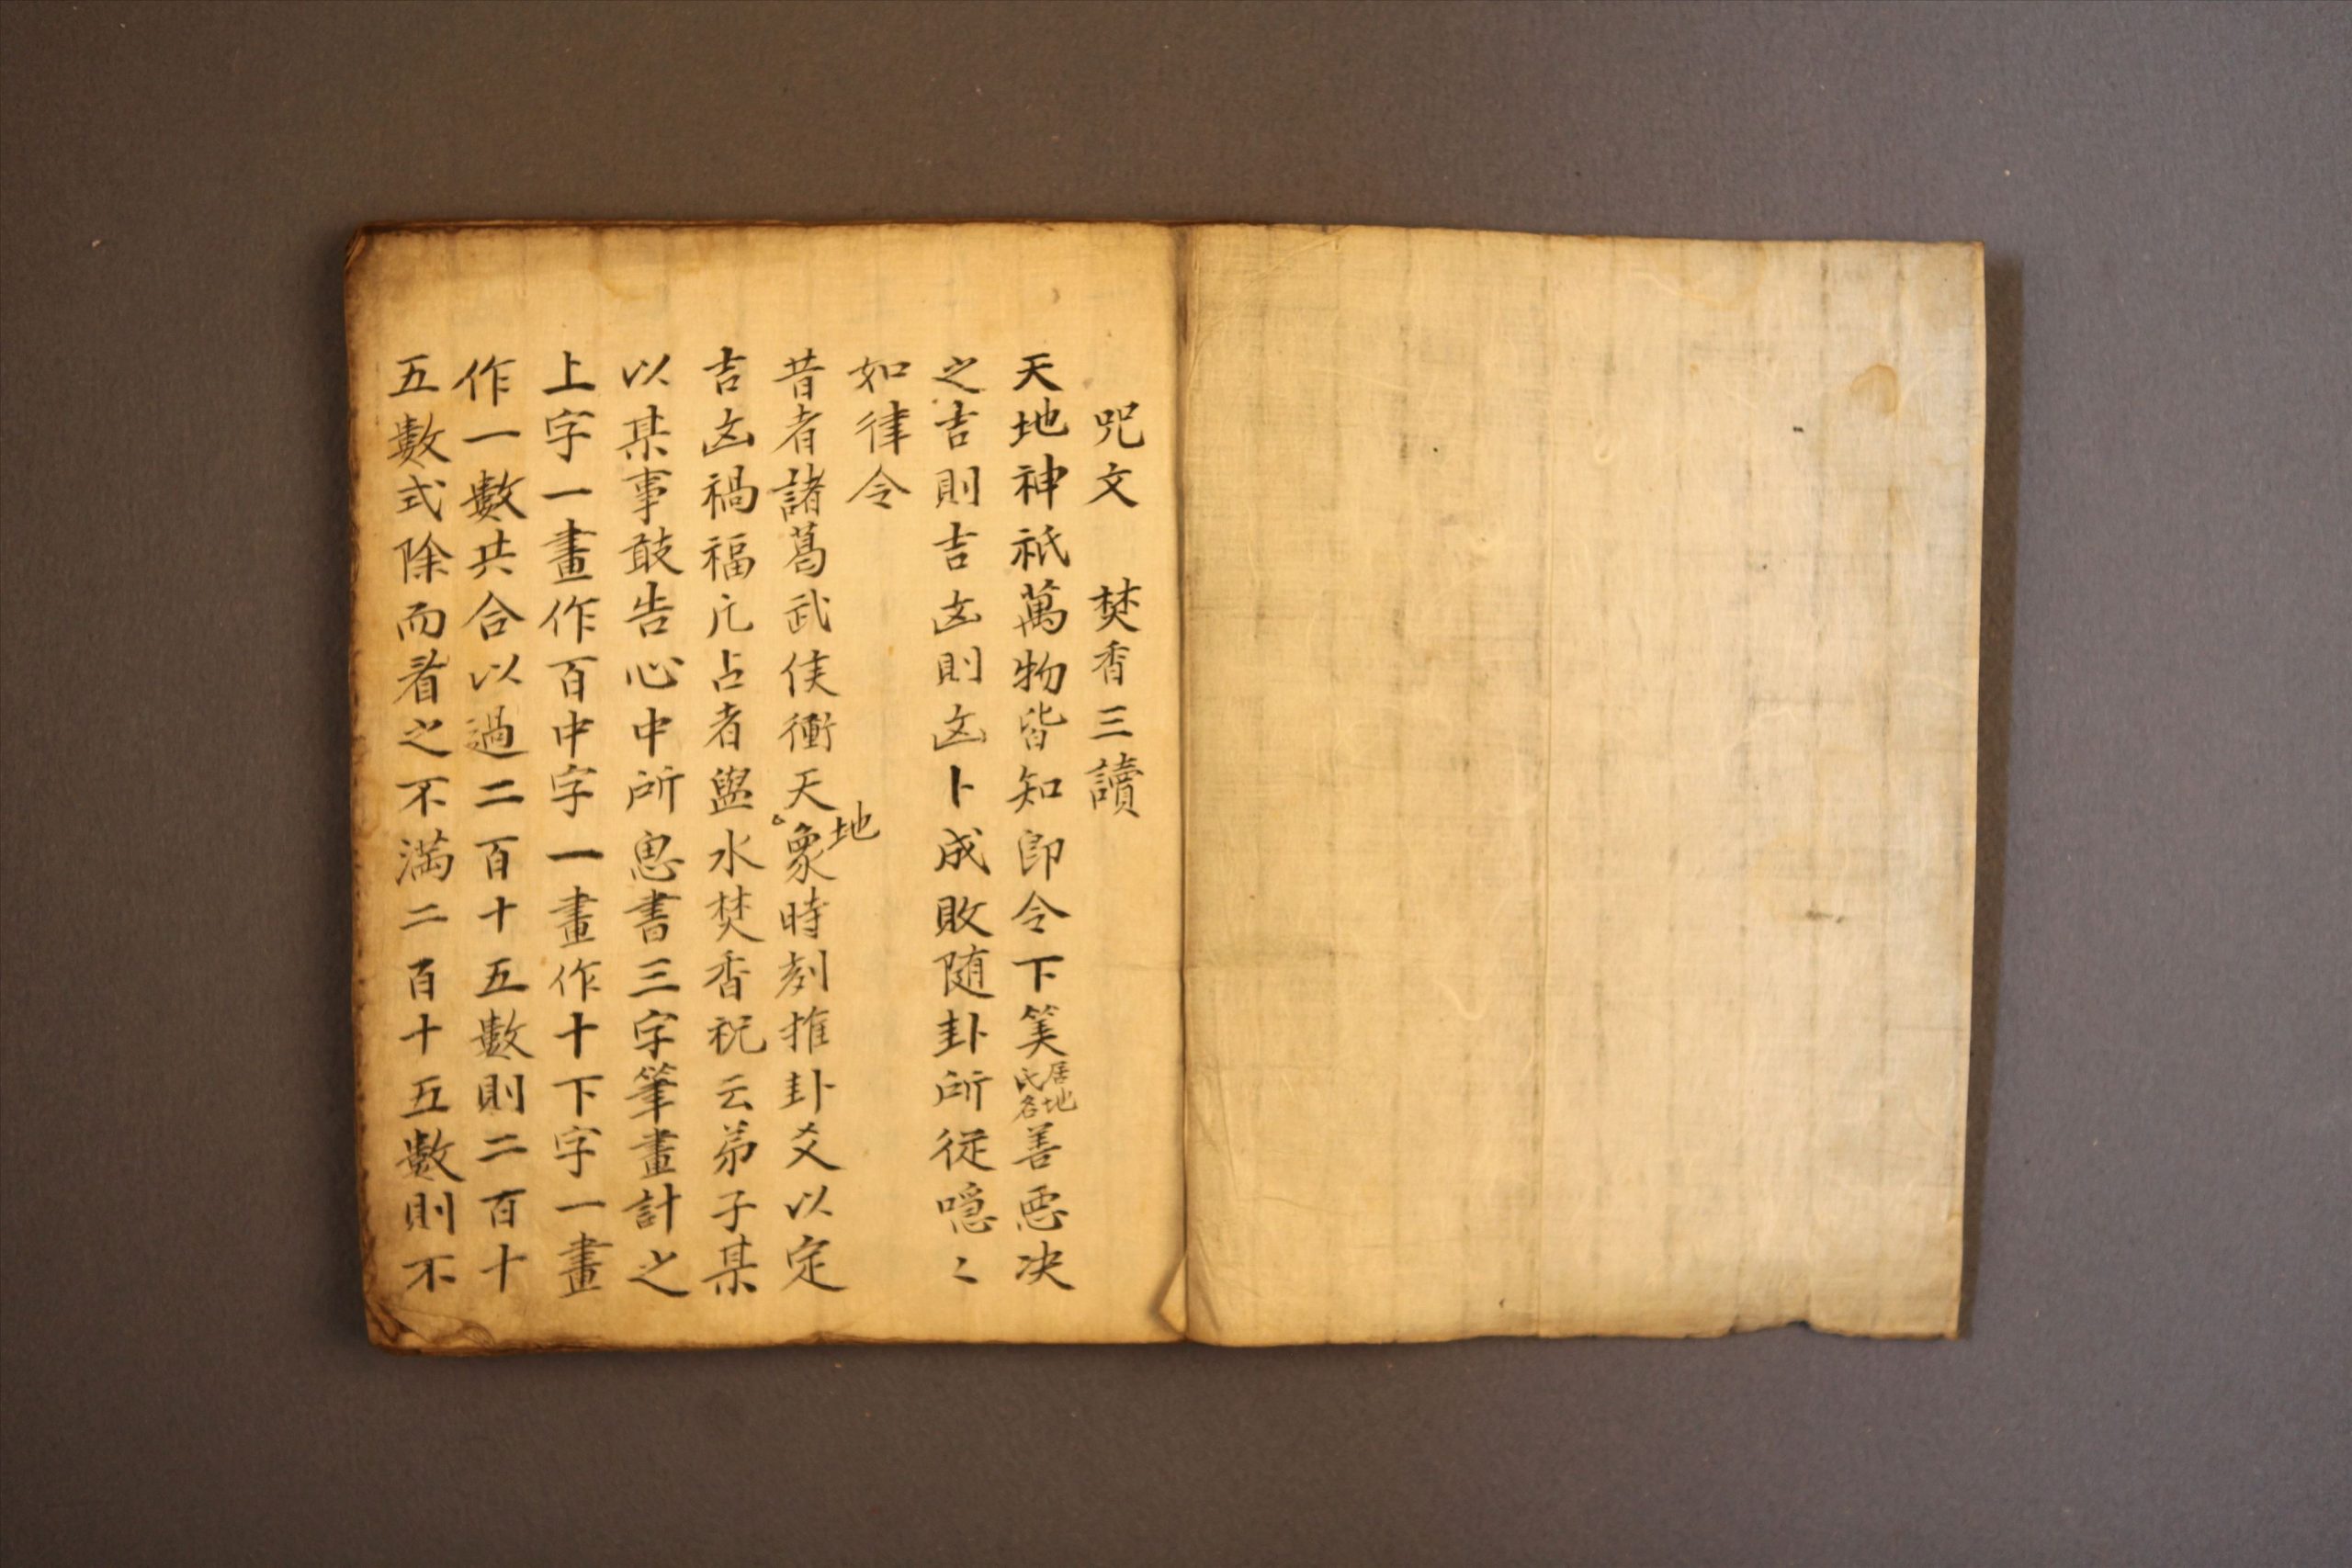 咒文　焚香三讀
天地神祇萬物皆知卽令下筭居地氏名善惡决
之吉則吉凶則凶卜成敗随卦所従噫〻
如律令
昔者諸葛武侯衝天地象時刻推卦爻以定
吉凶禍福凢占者盥水焚香祝云弟子某
以某事敢告心中所思書三字筆畫計之
上字一畫作百中字一畫作十下字一畫
作一數共合以過二百十五數則二百十
五數式除而看之不満二百十五數則不